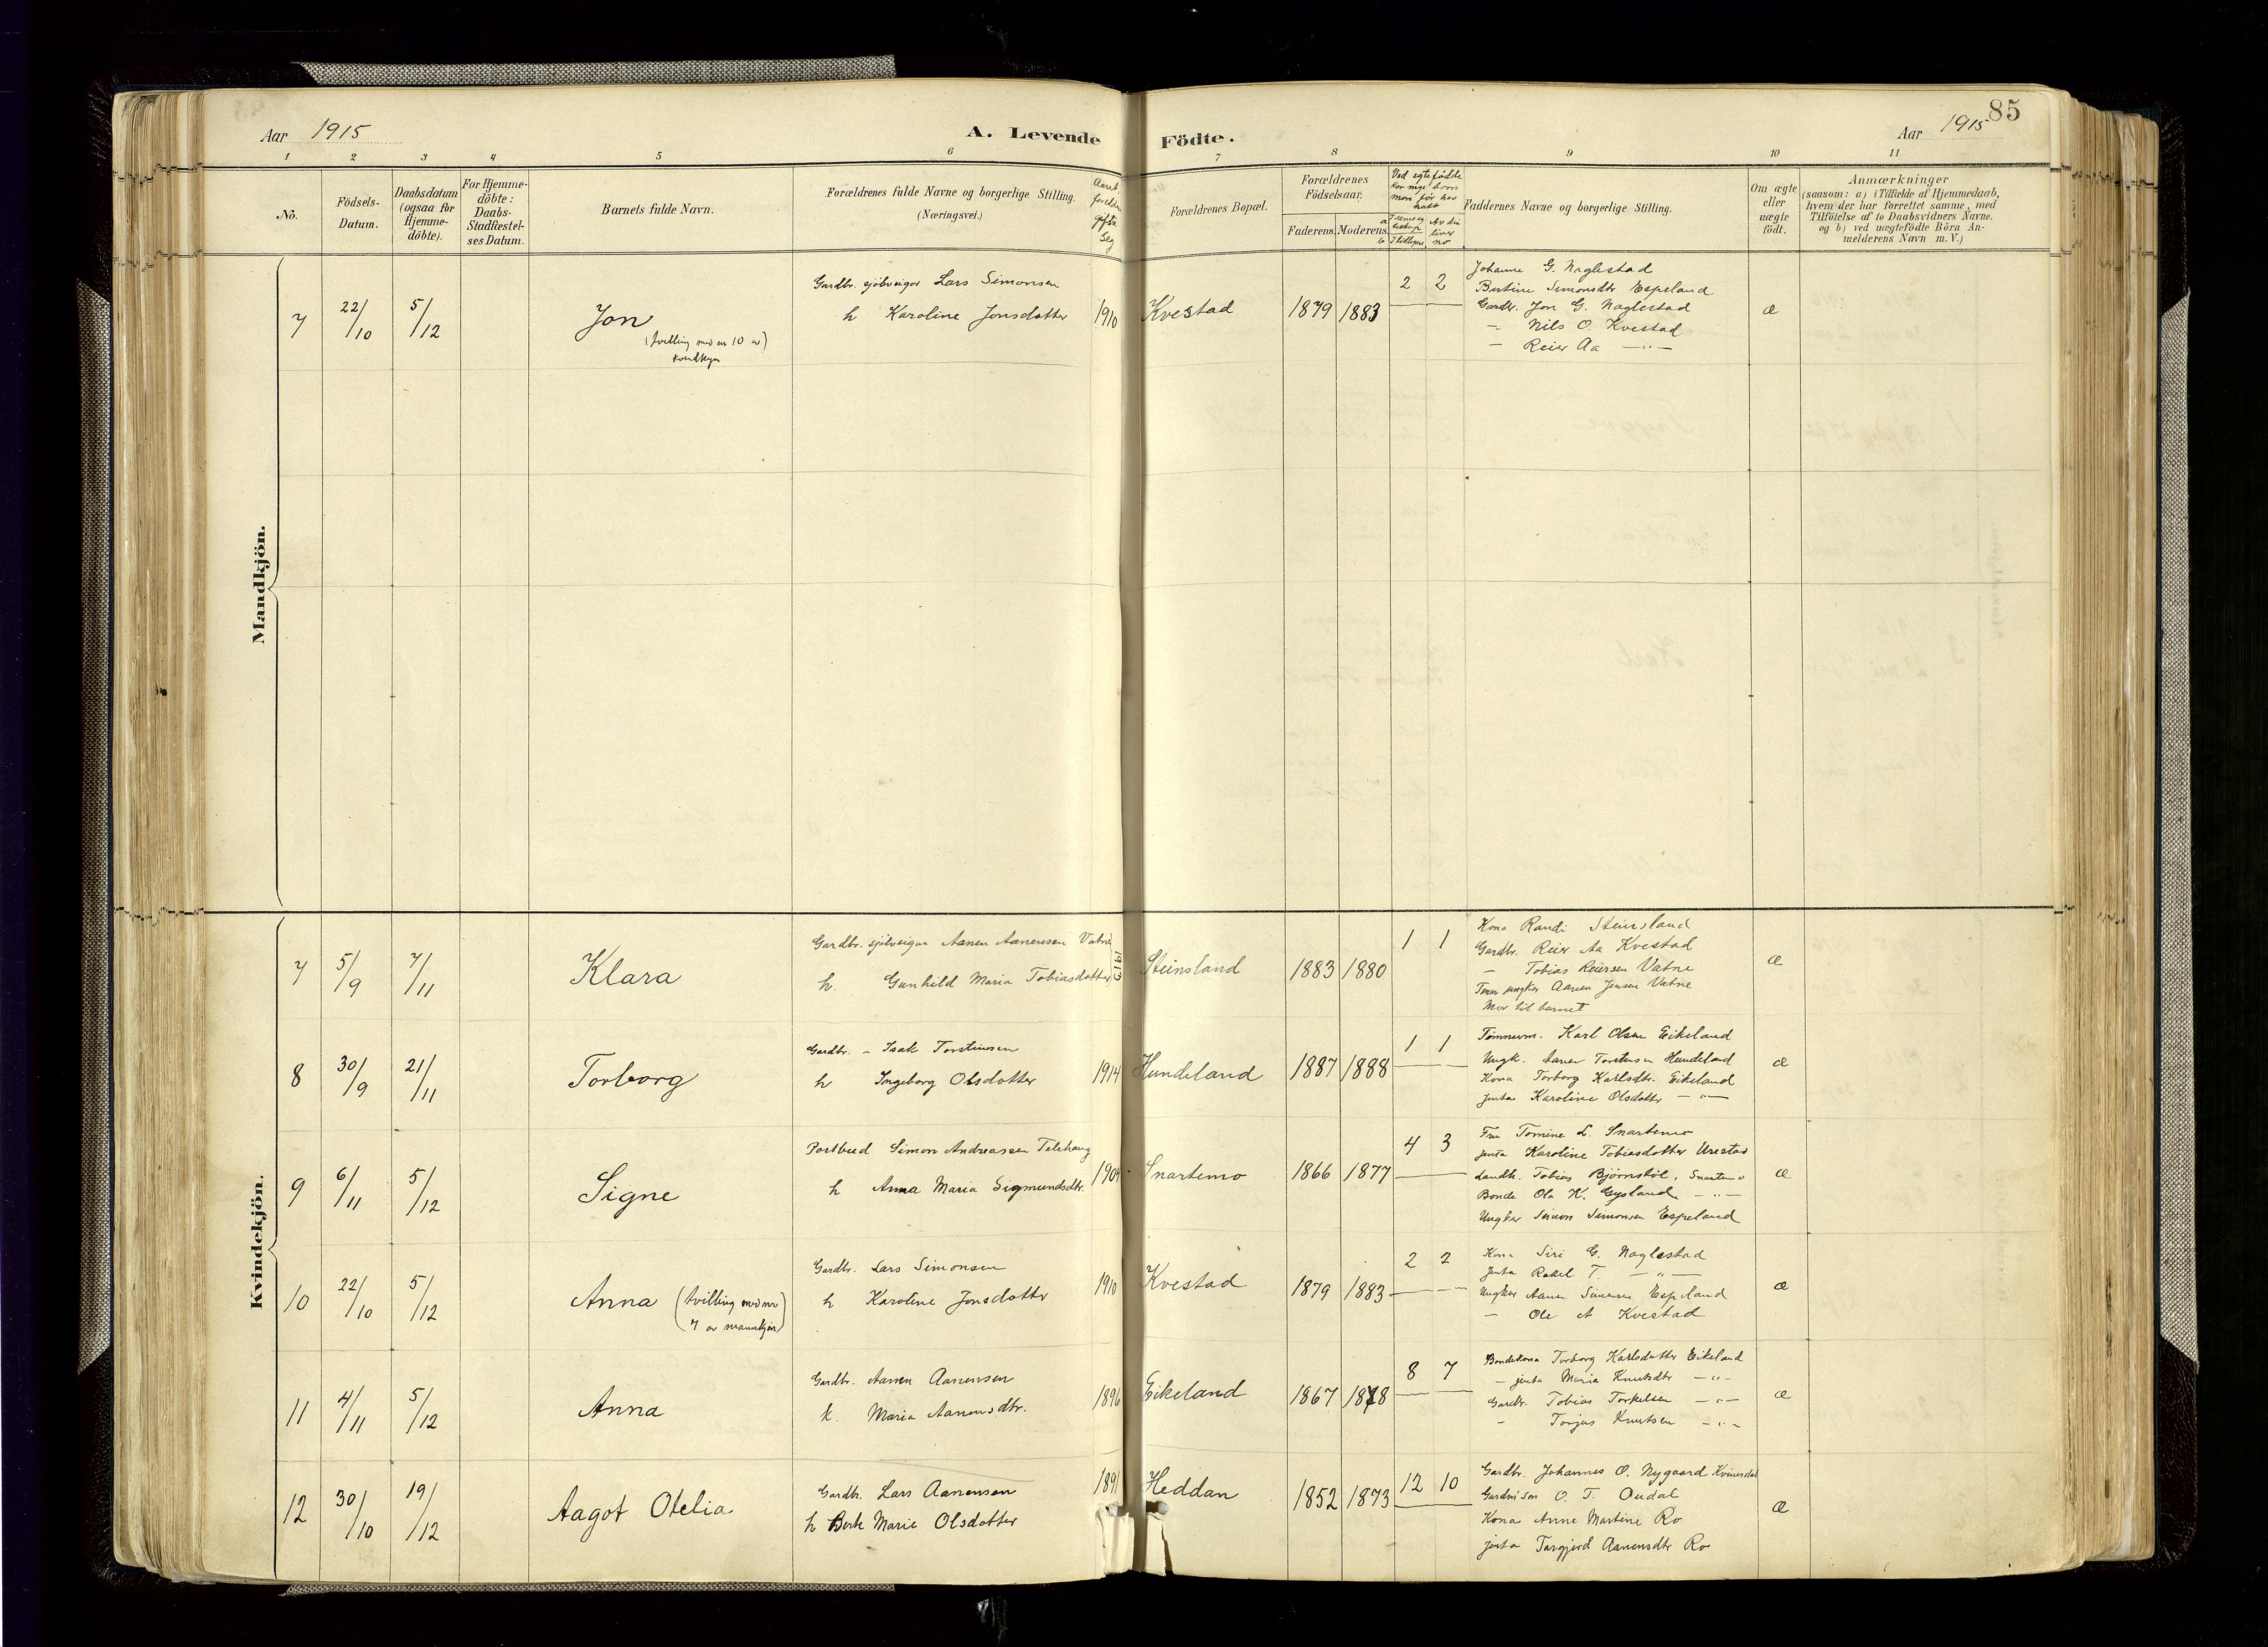 85
Aar 1915
A. Levende Födte.
Aar 1915
1 2 3 4 5 6 7 8 9 10 11
No.
Födsels-Datum.
Daabsdatum (ogsaa for Hjemme-döbte).
For Hjemme-döbte: Daabs-Stadfæstel-ses Datum.
Barnets fulde Navn.
Forældrenes fulde Navne og borgerlige Stilling.
(Næringsvei.)
Aaret foreldre gifta seg
Forældrenes Bopæl.
Forældrenes Födselsaar.
Faderens. Moderens.
Ved egtefødde
Faddernes Navne og borgerlige Stilling.
Om ægte eller uægte födt.
Anmærkninger
(saasom: a) i Tilfælde af Hjemmedaab,
hvem der har forrettet samme, med
Tilföielse af to Daabsvidners Navne.
og b) ved uægtefödte Börn An-
melderens Navn m. V.)
Mandkjön.
7 22/10 5/12 Jon
(tvilling med nr 10 av)
kvindkjøn
Gardbr. sjölveigar Lars Simonsen
h Karoline Jonsdotter
1910 Kvestad 1879 1883 2 2
Johanne G. Naglestad
Bertine Simonsdtr Espeland
Gardbr. Jon G. Naglestad
— Nils O. Kvestad
— Reier Aa —"—
æ
Kvindekjön.
7 5/9 7/11 Klara
Gardbr. sjölveigar Aanen Aanensen Vatne
h. Gunhild Maria Tobiasdotter
1913 Steinsland 1883 1880 1 1
Kona Randi Steinsland
Gardbr. Reier Aa Kvestad
— Tobias Reiersen Vatne
ungkar Aanen Jensen Vatne
Mor til barnet
æ
8 30/9 21/11 Torborg
Gardbr. — Isak Torstensen
h Ingeborg Olsdotter
1914 Hundeland 1887 1888 1 1
Tømmerm. Karl Olsen Eikeland
Ungk. Aanen Torstensen Hundeland
Kona Torborg Karlsdtr. Eikeland
jenta Karoline Olsdotter —"—
æ
9 6/11 5/12 Signe
Postbud Simon Andreassen Telehaug
h Anna Maria Sigmundsdtr.
1904 Snartemo 1866 1877 4 3
Fru Tomine L. Snartemo
jenta Karoline Tobiasdotter Urestad
Landh. Tobias Bjørnstöl, Snartemo
Bonde Ola K. Eysland —"—
Ungkar Simon Simonsen Espeland
æ
10 22/10 5/12 Anna (tvilling med nr
7 av mannkjøn)
Gardbr. Lars Simonsen
h Karoline Jonsdotter
1910 Kvestad 1879 1883 2 2
Kona Siri G. Naglestad
Jenta Rakel T. —"—
Ungkar Aanen Simonsen Espeland
— Ole A Kvestad
æ
11 4/11 5/12 Anna
Gardbr. Aanen Aanensen
k. Maria Aanensdtr.
1896 Eikeland 1867 1878 8 7
Bondekona Torborg Karlsdotter Eikeland
— jenta Maria Knutsdtr —"—
Gardbr. Tobias Torkelsen —"—
— Torjus Knutsen —"—
æ
12 30/10 19/12 Aagot Otelia
Gardbr. Lars Aanensen
h Berte Marie Olsdotter
1891 Heddan 1852 1873 12 10
Gardbr. Johannes O. Nygaard Kvinesdal
Gardm.son O. T. Omdal
Kona Anne Martine Ro
jenta Targjerd Aanensdtr Ro
æ